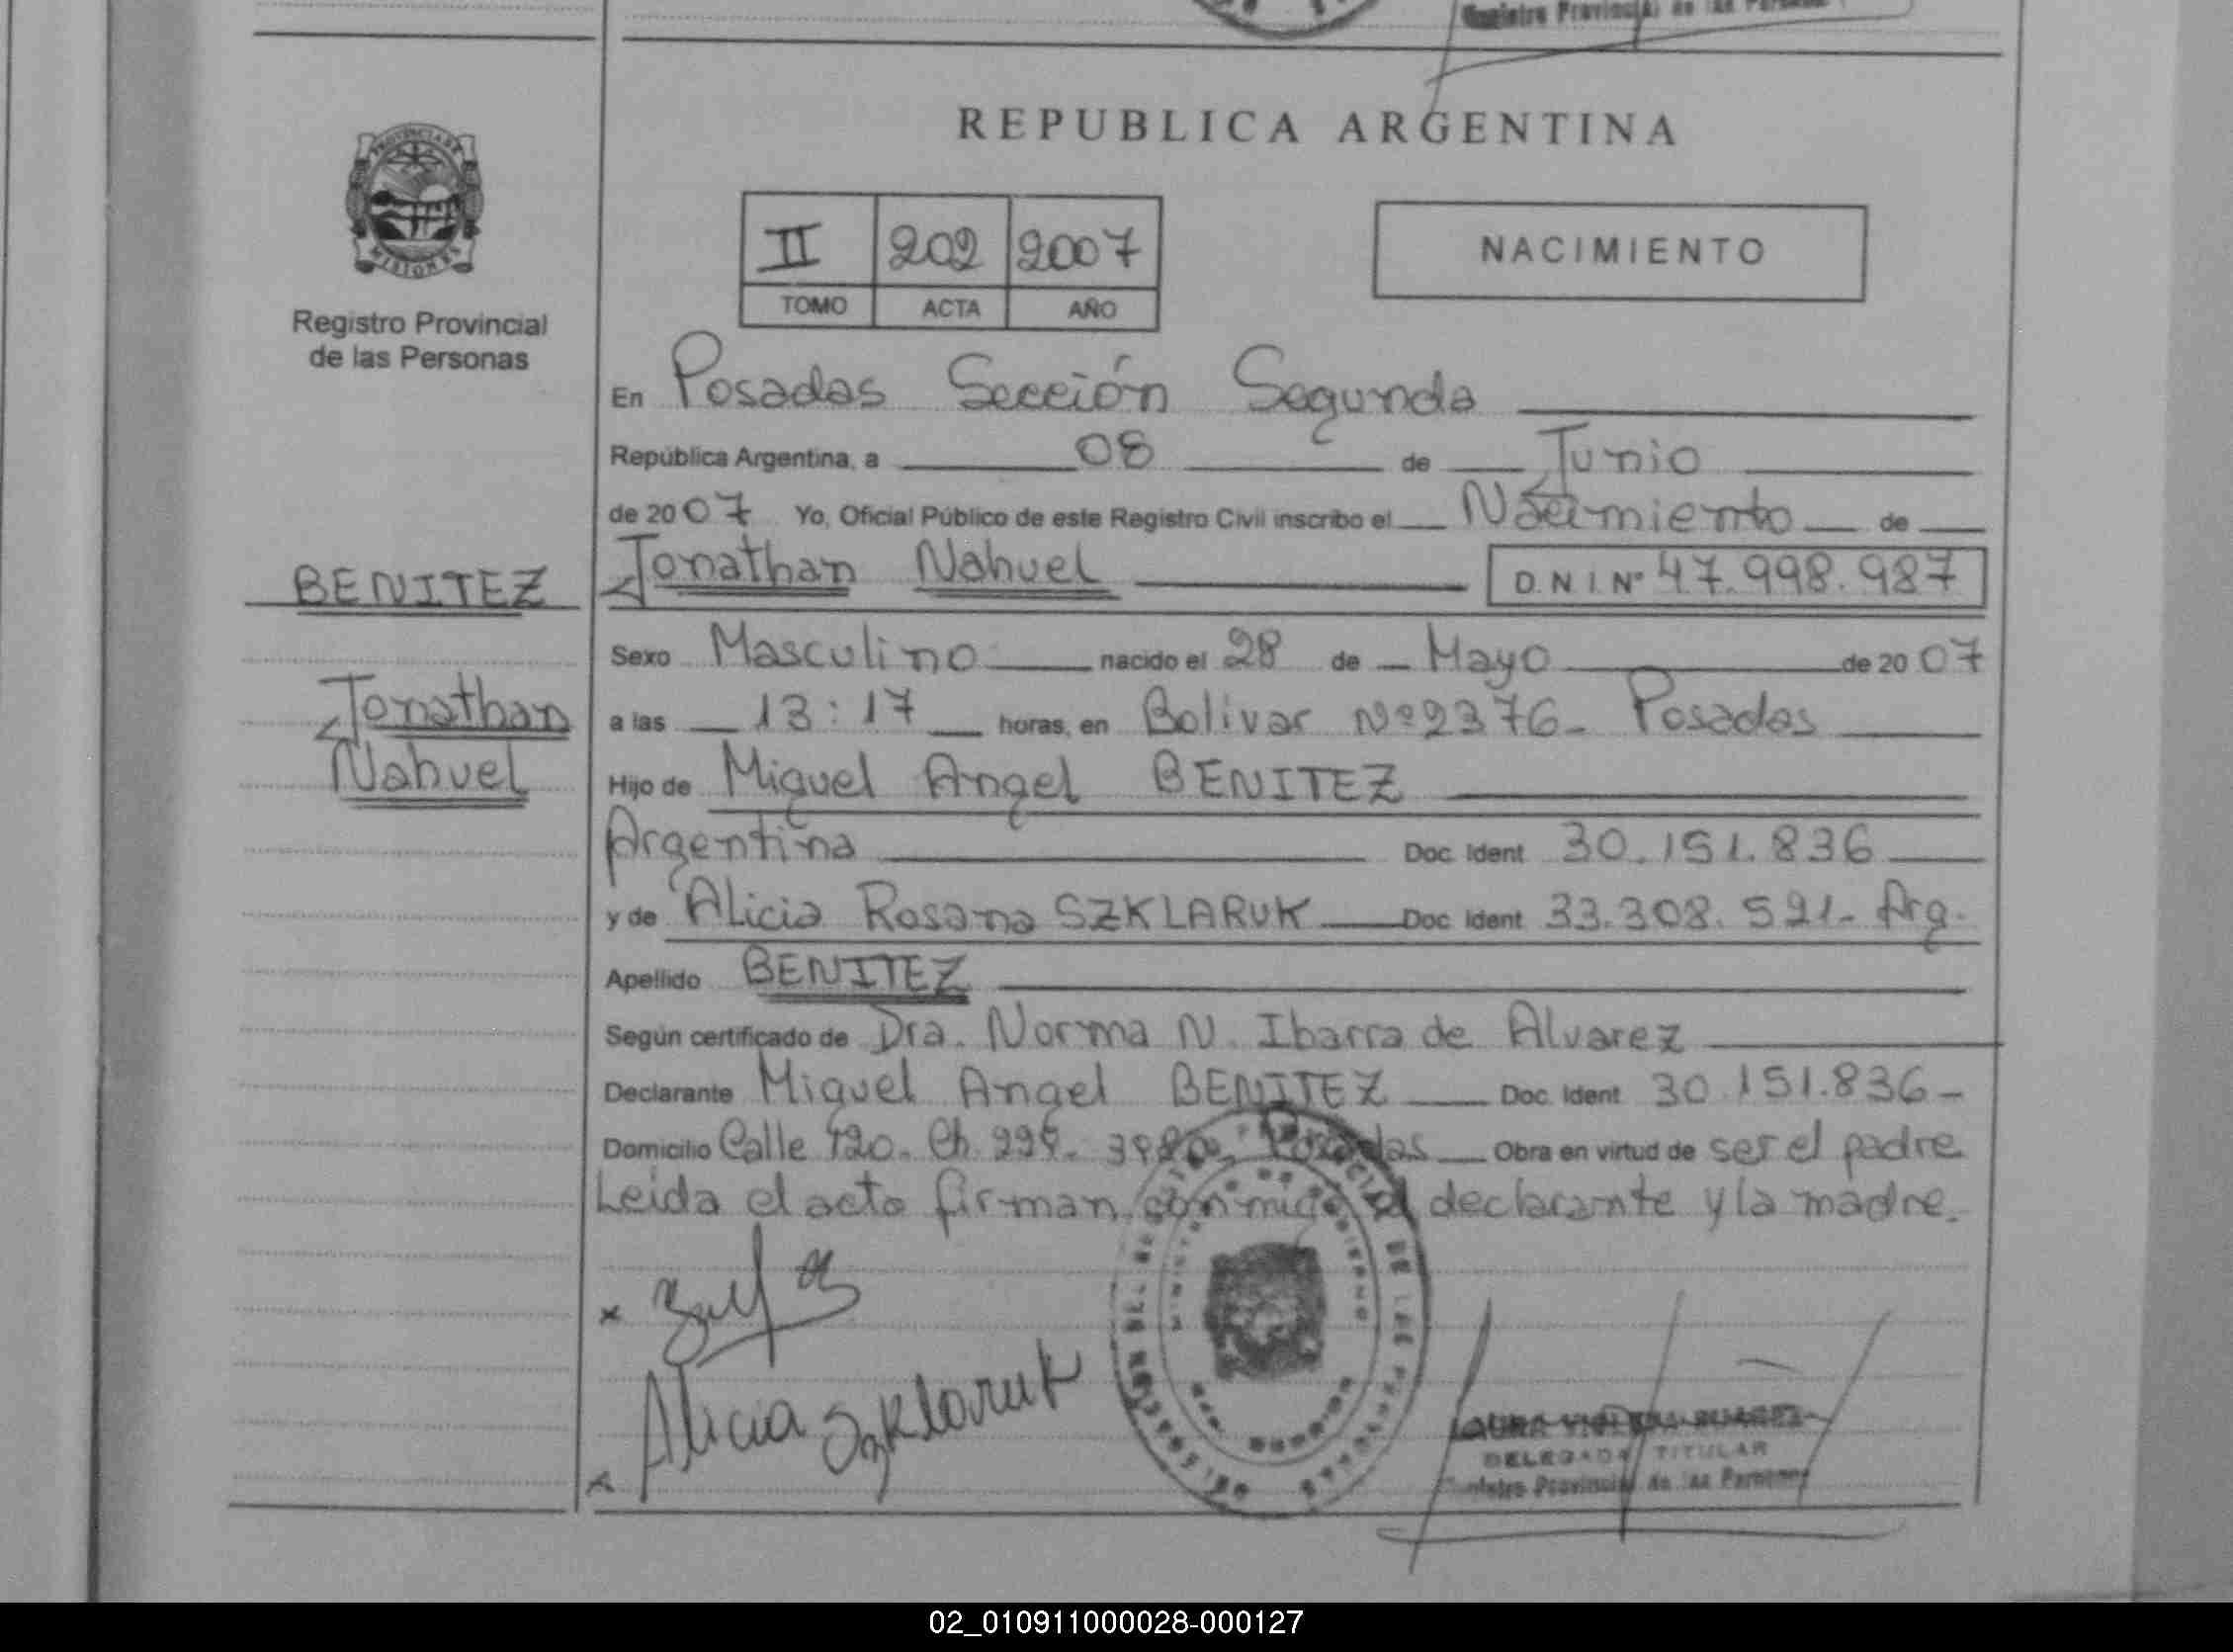 Registro Provincial de las Personas
REPUBLICA ARGENTINA
PROVINCIA DE
MISIONES
II 202 2007
TOMO ACTA AÑO
NACIMIENTO
Registro Provincial
de las Personas
En Posadas Sección Segunda
República Argentina, a 08 de Junio
de 2007 Yo, Oficial Público de este Registro Civil inscribo el Nacimiento de
BENITEZ
Jonathan Nahuel D.N.I. Nº 47.998.987
Sexo Masculino nacido el 28 de Mayo de 2007
Jonathan
Nahuel
a las 13:17 horas, en Bolivar Nº 2376- Posadas
Hijo de Miguel Angel BENITEZ
Argentina Doc. Ident 30.151.836
y de Alicia Rosana SZKLARUK Doc. Ident 33.308.521- Arg.
Apellido BENITEZ
Según certificado de Dra. Norma N. Ibarra de Alvarez
Declarante Miguel Angel BENITEZ Doc. Ident 30.151.836-
Domicilio Calle 120. Ch. Posadas Obra en virtud de ser el padre
Leida el acta firman conmigo el declarante y la madre.
Alicia Szklaruk
LAURA SUAREZ
DELEGADA TITULAR
Registro Provincial de las Personas
02_010911000028-000127